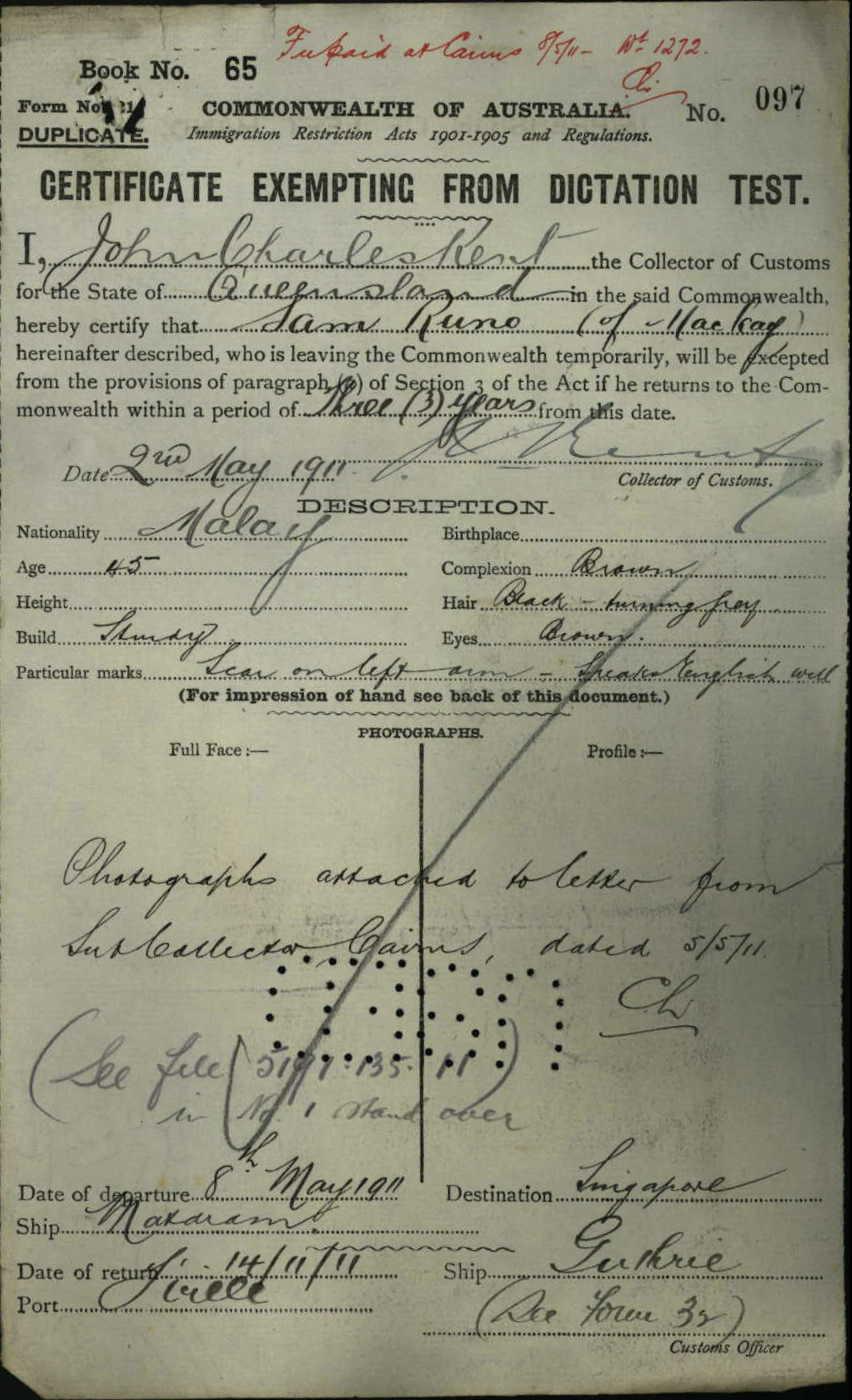 Fee paid at Cairns 8/5/11 - No. 1272.
Book No. 65
Form No. 21
COMMONWEALTH OF AUSTRALIA.
No. 097
DUPLICATE.
Immigration Restriction Acts 1901-1905 and Regulations.
CERTIFICATE EXEMPTING FROM DICTATION TEST.
I, John Charles Kent the Collector of Customs
for the State of Queensland in the said Commonwealth,
hereby certify that Sam Runo (of Mackay)
hereinafter described, who is leaving the Commonwealth temporarily, will be excepted
from the provisions of paragraph (a) of Section 3 of the Act if he returns to the Com-
monwealth within a period of three (3) years from this date.
Date 2nd May 1911
Collector of Customs.
DESCRIPTION.
Nationality Malay
Birthplace
Age 45
Complexion Brown
Height
Hair Black - turning grey
Build Sturdy
Eyes Brown.
Particular marks Scar on left arm - Speaks English well
(For impression of hand see back of this document.)
PHOTOGRAPHS.
Full Face :—
Profile :—
Photographs attached to letter from
Sub Collector, Cairns, dated 5/5/11.
(See file
in No. 1 stand over
Date of departure 8th May 1911
Destination Singapore
Ship Mataram
Date of return 14/11/11
Ship Guthrie
Port T'ville
(See Form 32)
Customs Officer